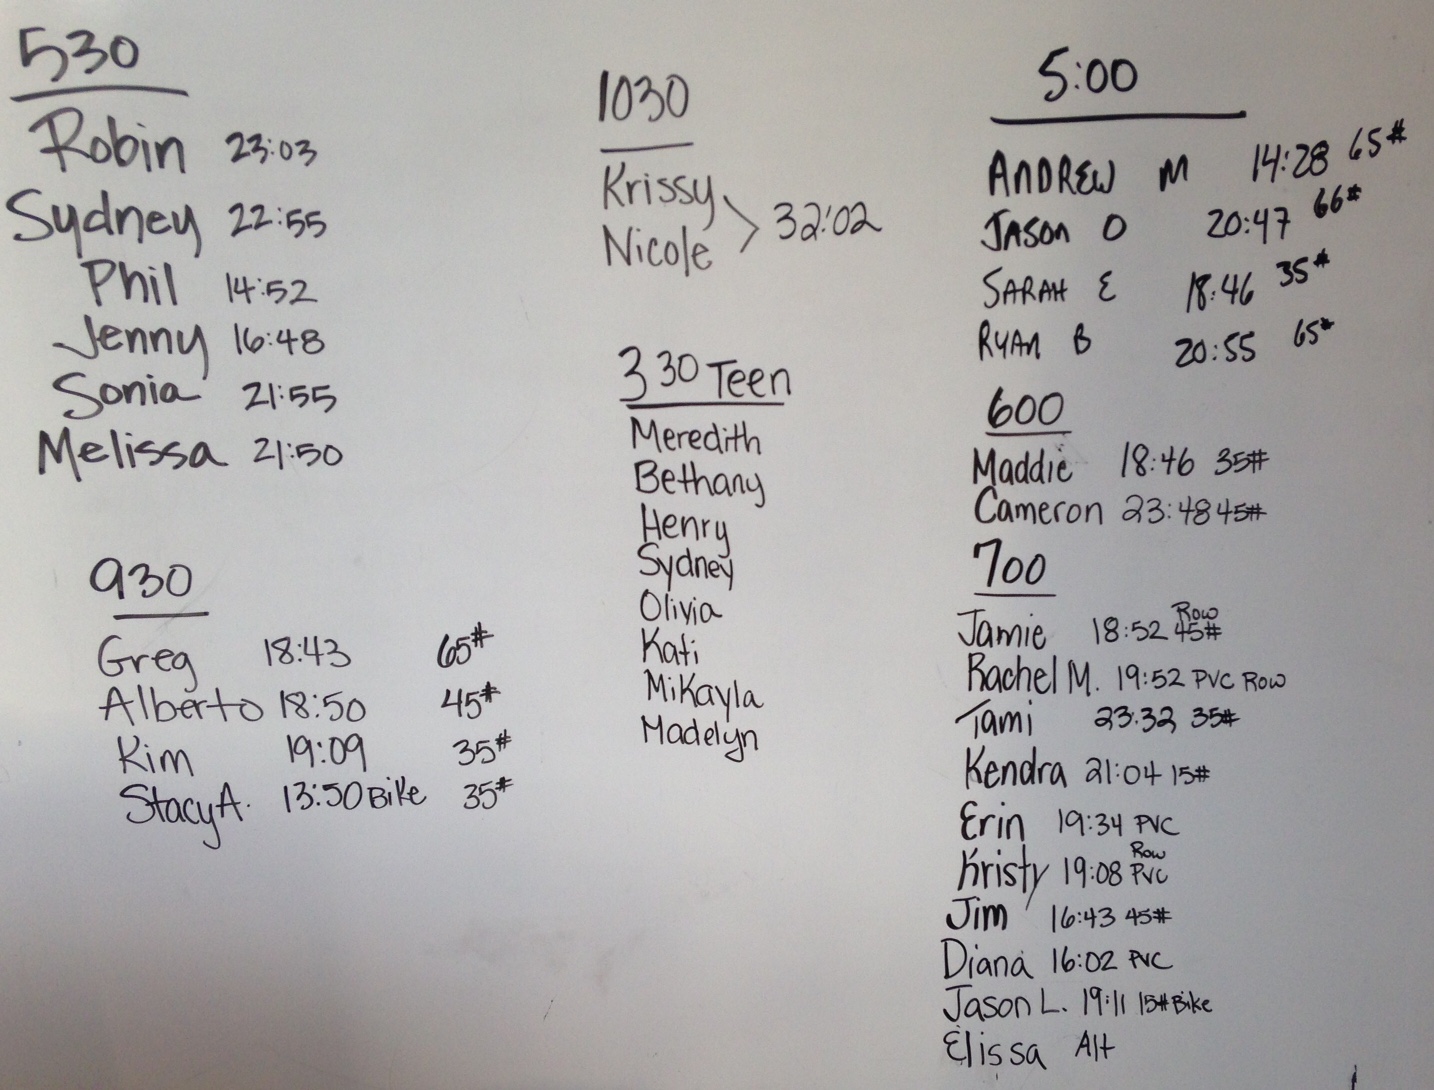 530
Robin 23:03
Sydney 22:55
Phil 14:52
Jenny 16:48
Sonia 21:55
Melissa 21:50
930
Greg 18:43 65#
Alberto 18:50 45#
Kim 19:09 35#
Stacy A. 13:50 Bike 35#
1030
Krissy
Nicole > 32:02
330 Teen
Meredith
Bethany
Henry
Sydney
Olivia
Kati
MiKayla
Madelyn
5:00
ANDREW M 14:28 65#
JASON O 20:47 66#
SARAH E 18:46 35#
RYAN B 20:55 65#
600
Maddie 18:46 35#
Cameron 23:48 45#
700
Jamie 18:52 Row 45#
Rachel M. 19:52 PVC Row
Tami 23:32 35#
Kendra 21:04 15#
Erin 19:34 PVC
Kristy 19:08 Row PVC
Jim 16:43 45#
Diana 16:02 PVC
Jason L. 19:11 15# Bike
Elissa Alt